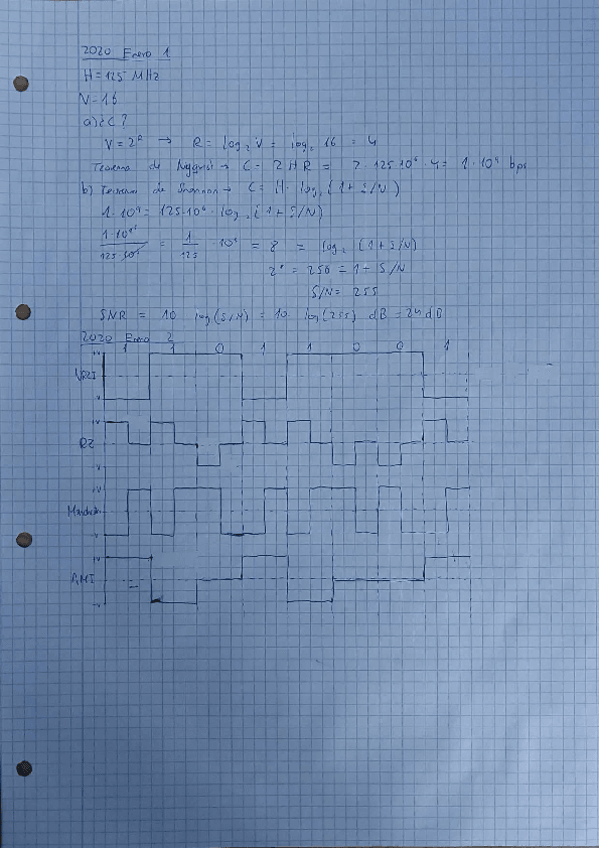 2020 Enero 1
H = 125 MHz
V = 16
a) ¿C?
V = 2ᴿ → R = log₂ V = log₂ 16 = 4
Teorema de Nyquist → C = 2 H R = 2 · 125·10⁶ · 4 = 1·10⁹ bps
b) Teorema de Shannon → C = H · log₂ (1 + S/N)
1·10⁹ = 125·10⁶ · log₂ (1 + S/N)
= 8 = log₂ (1 + S/N)
2⁸ = 256 = 1 + S/N
S/N = 255
SNR = 10 log(S/N) = 10 · log(255) dB = 24 dB
2020 Enero 2
1 1 0 1 1 0 0 1
NRZI
RZ
AMI